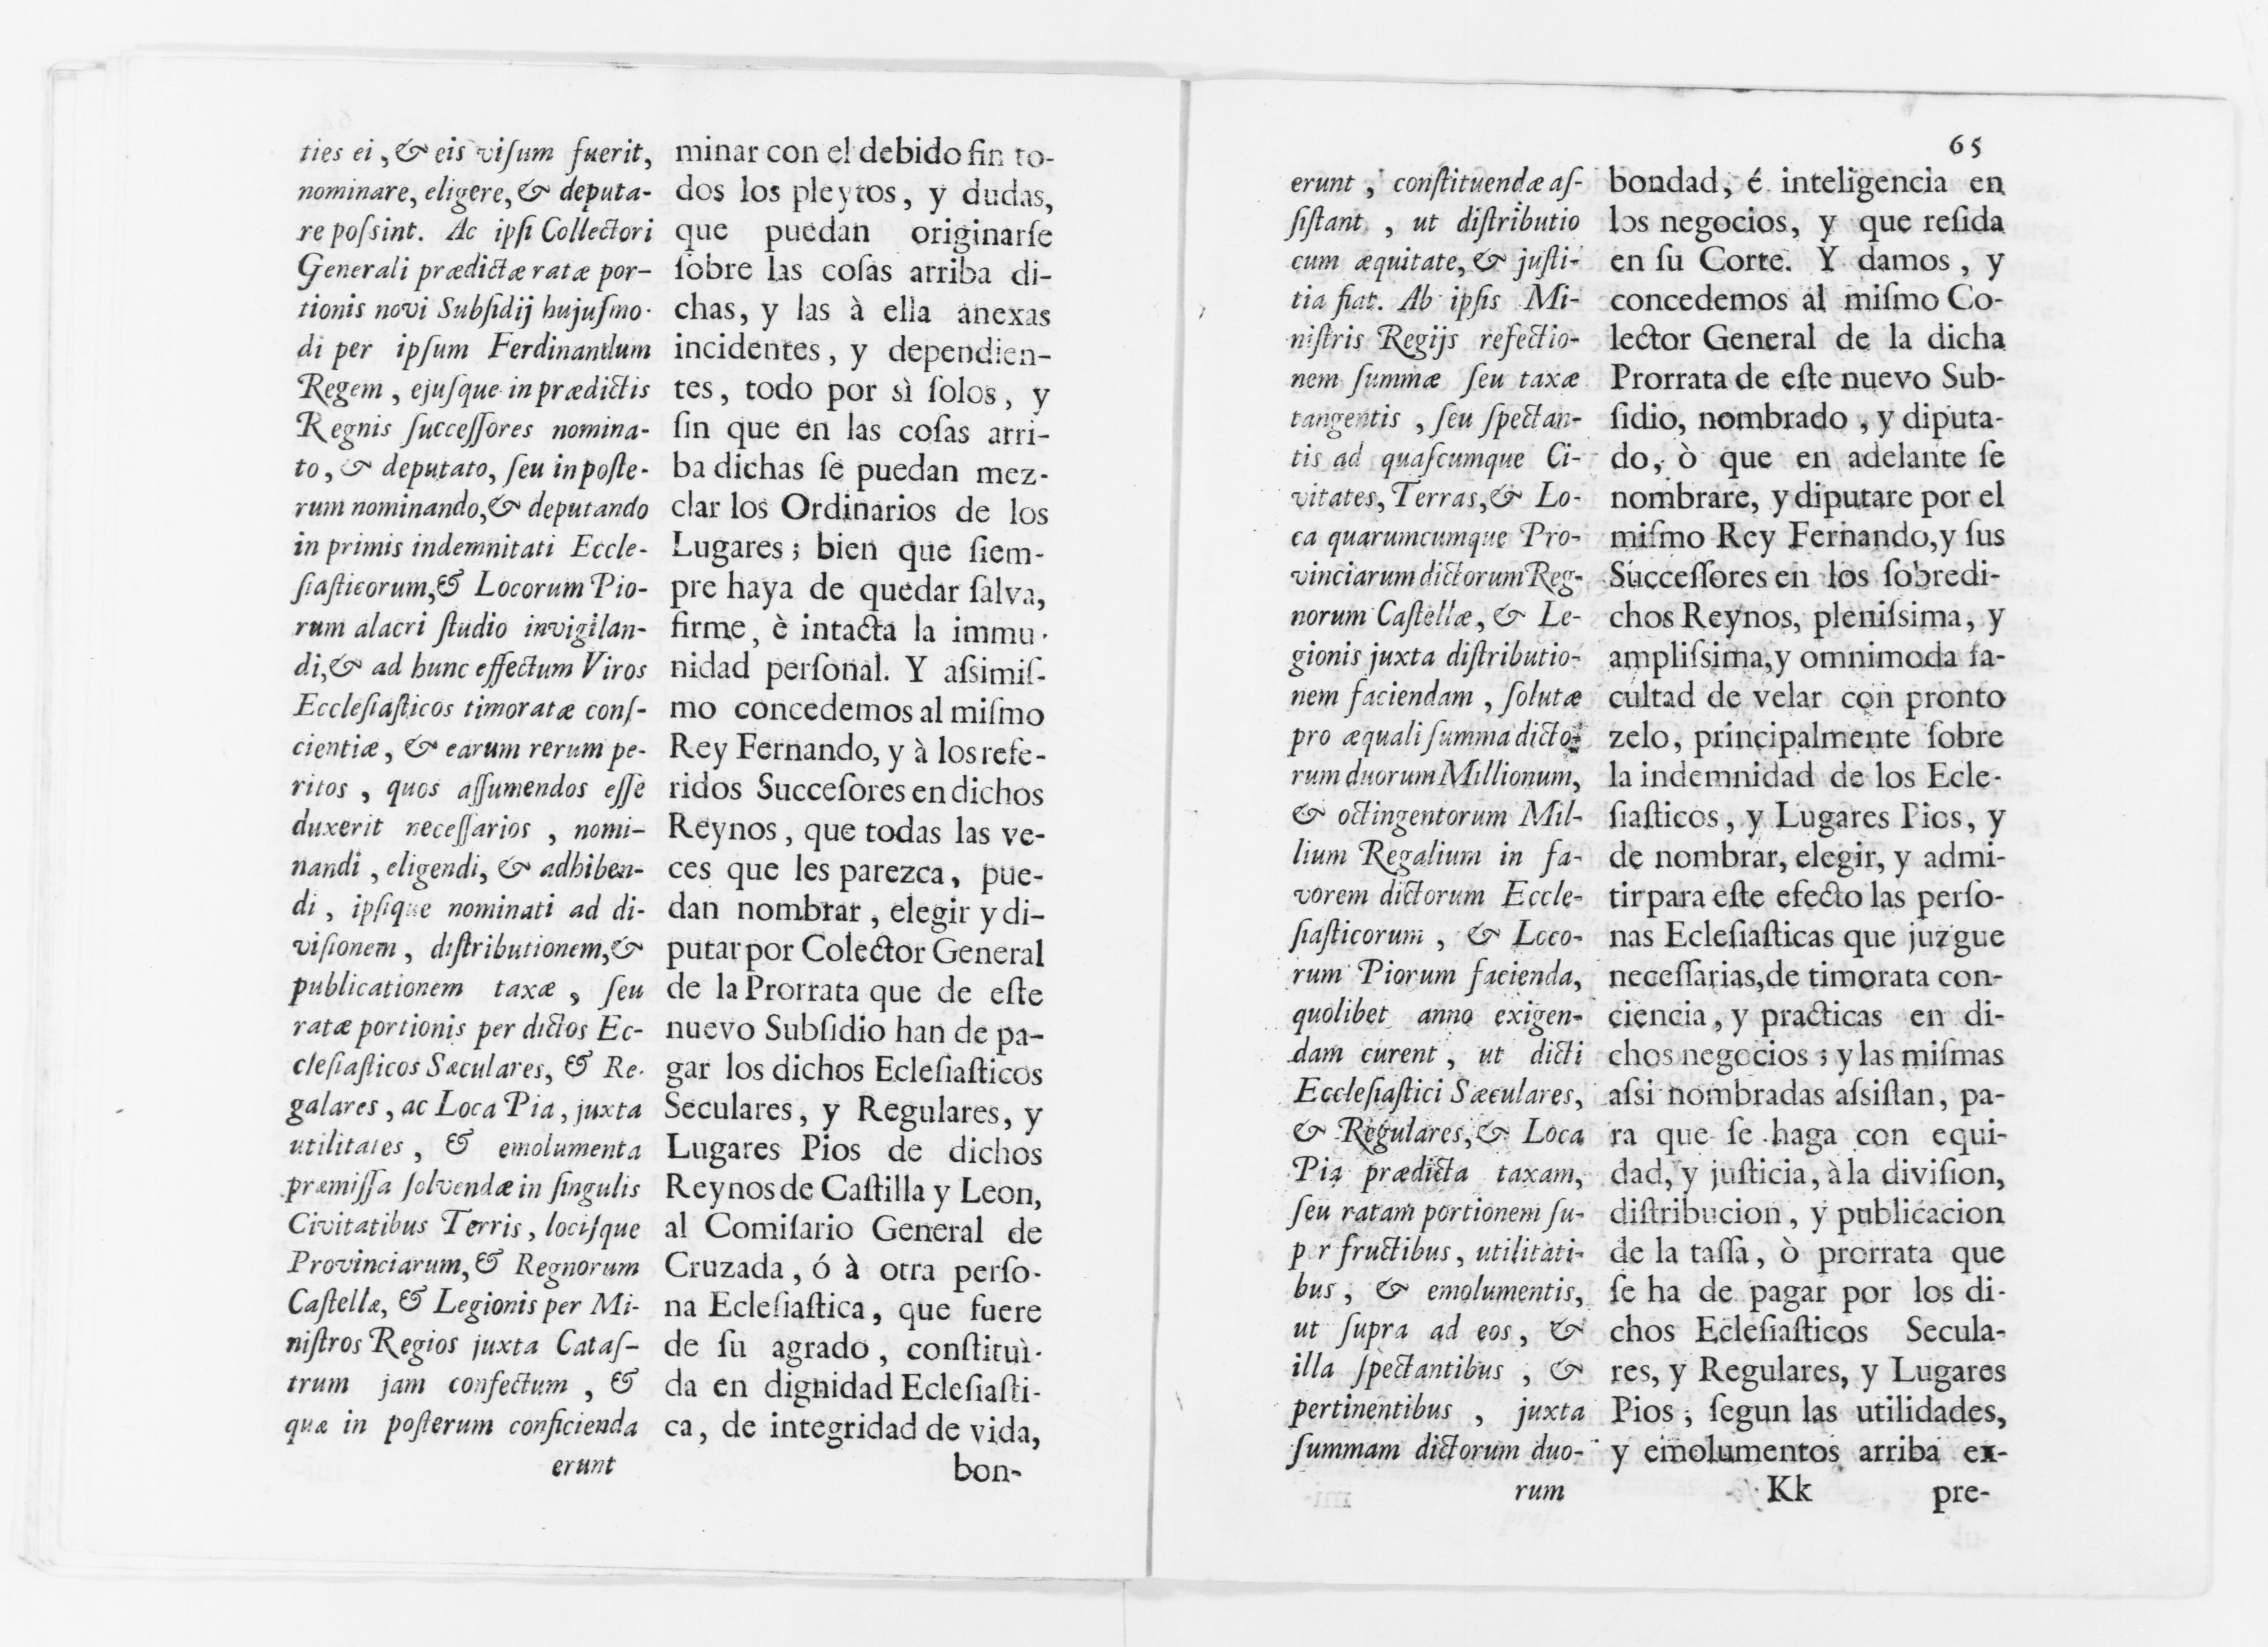 ties ei, & eis viſum fuerit,
nominare, eligere, & deputa-
re poſsint. Ac ipſi Collectori
Generali prædictæ ratæ por-
tionis novi Subſidij hujuſmo-
di per ipſum Ferdinandum
Regem, ejuſque in prædictis
Regnis ſucceſſores nomina-
to, & deputato, ſeu in poſte-
rum nominando, & deputando
in primis indemnitati Eccle-
ſiaſticorum, & Locorum Pio-
rum alacri ſtudio invigilan-
di, & ad hunc effectum Viros
Eccleſiaſticos timoratæ conſ-
cientiæ, & earum rerum pe-
ritos, quos aſſumendos eſſe
duxerit neceſſarios, nomi-
nandi, eligendi, & adhiben-
di, ipſique nominati ad di-
viſionem, diſtributionem, &
publicationem taxæ, ſeu
ratæ portionis per dictos Ec-
cleſiaſticos Sæculares, & Re-
galares, ac Loca Pia, juxta
utilitates, & emolumenta
præmiſſa ſolvendæ in ſingulis
Civitatibus Terris, lociſque
Provinciarum, & Regnorum
Caſtellæ, & Legionis per Mi-
niſtros Regios juxta Cataſ-
trum jam confectum, &
quæ in poſterum conficienda
erunt
minar con el debido fin to-
dos los pleytos, y dudas,
que puedan originarſe
ſobre las coſas arriba di-
chas, y las à ella anexas
incidentes, y dependien-
tes, todo por sì ſolos, y
ſin que en las coſas arri-
ba dichas ſe puedan mez-
clar los Ordinarios de los
Lugares; bien que ſiem-
pre haya de quedar ſalva,
firme, è intacta la immu-
nidad perſonal. Y aſsimiſ-
mo concedemos al miſmo
Rey Fernando, y à los refe-
ridos Succeſores en dichos
Reynos, que todas las ve-
ces que les parezca, pue-
dan nombrar, elegir y di-
putar por Colector General
de la Prorrata que de eſte
nuevo Subſidio han de pa-
gar los dichos Ecleſiaſticos
Seculares, y Regulares, y
Lugares Pios de dichos
Reynos de Caſtilla y Leon,
al Comiſario General de
Cruzada, ó à otra perſo-
na Ecleſiaſtica, que fuere
de ſu agrado, conſtituì-
da en dignidad Ecleſiaſti-
ca, de integridad de vida,
bon-
65
erunt, conſtituendæ aſ-
ſiſtant, ut diſtributio
cum æquitate, & juſti-
tia fiat. Ab ipſis Mi-
niſtris Regijs refectio-
nem ſummæ ſeu taxæ
tangentis, ſeu ſpectan-
tis ad quaſcumque Ci-
vitates, Terras, & Lo-
ca quarumcumque Pro-
vinciarum dictorum Reg-
norum Caſtellæ, & Le-
gionis juxta diſtributio-
nem faciendam, ſolutæ
pro æquali ſumma dicto-
rum duorum Millionum,
& octingentorum Mil-
lium Regalium in fa-
vorem dictorum Eccle-
ſiaſticorum, & Loco-
rum Piorum facienda,
quolibet anno exigen-
dam curent, ut dicti
Eccleſiaſtici Sæculares,
& Regulares, & Loca
Pia prædicta taxam,
ſeu ratam portionem ſu-
p r fructibus, utilitati-
bus, & emolumentis,
ut ſupra ad eos, &
illa ſpectantibus, &
pertinentibus, juxta
ſummam dictorum duo-
rum
bondad, é inteligencia en
los negocios, y que reſida
en ſu Corte. Y damos, y
concedemos al miſmo Co-
lector General de la dicha
Prorrata de eſte nuevo Sub-
ſidio, nombrado, y diputa-
do, ò que en adelante ſe
nombrare, y diputare por el
miſmo Rey Fernando, y ſus
Succeſſores en los ſobredi-
chos Reynos, pleniſsima, y
ampliſsima, y omnimoda fa-
cultad de velar con pronto
zelo, principalmente ſobre
la indemnidad de los Ecle-
ſiaſticos, y Lugares Pios, y
de nombrar, elegir, y admi-
tir para eſte efecto las perſo-
nas Ecleſiaſticas que juzgue
neceſſarias, de timorata con-
ciencia, y practicas en di-
chos negocios; y las miſmas
aſsi nombradas aſsiſtan, pa-
ra que ſe haga con equi-
dad, y juſticia, à la diviſion,
diſtribucion, y publicacion
de la taſſa, ò prorrata que
ſe ha de pagar por los di-
chos Ecleſiaſticos Secula-
res, y Regulares, y Lugares
Pios, ſegun las utilidades,
y emolumentos arriba ex-
Kk pre-